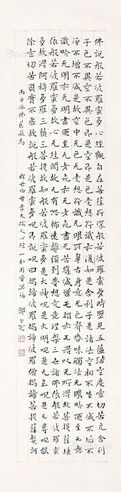 佛說般若波羅蜜多心經觀自在菩薩行深般若波羅蜜多時照見五蘊皆空度一切苦厄舍利
子色不異空空不異色色即是空空即是色受想行識亦復如是舍利子是諸法空相不生不滅不垢不
淨不增不減是故空中无色无受想行識无眼耳鼻舌身意无色聲香味觸法无眼界乃至无意
識界无无明亦无无明盡乃至无老死亦无老死盡无苦集滅道无智亦无得以无所得故菩提薩
埵依般若波羅蜜多故心无罣礙无罣礙故无有恐怖遠離顛倒夢想究竟涅槃三世諸佛依般若波羅蜜
多故得阿耨多羅三藐三菩提故知般若波羅蜜多是大神咒是大明咒是无上咒是无等等咒能
除一切苦真實不虛故說般若波羅蜜多咒即說咒曰揭諦揭諦波羅揭諦波羅僧揭諦菩提薩婆訶
丙子浴佛節敬為